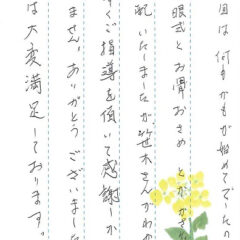 回は何もかもが始めてでしたの
眼式とお骨おさめ とかがき
乾いたしましたが笹木さんがわか
すくご指導を頂いて感謝しか
ません。ありがとうございました
は大変満足しております。